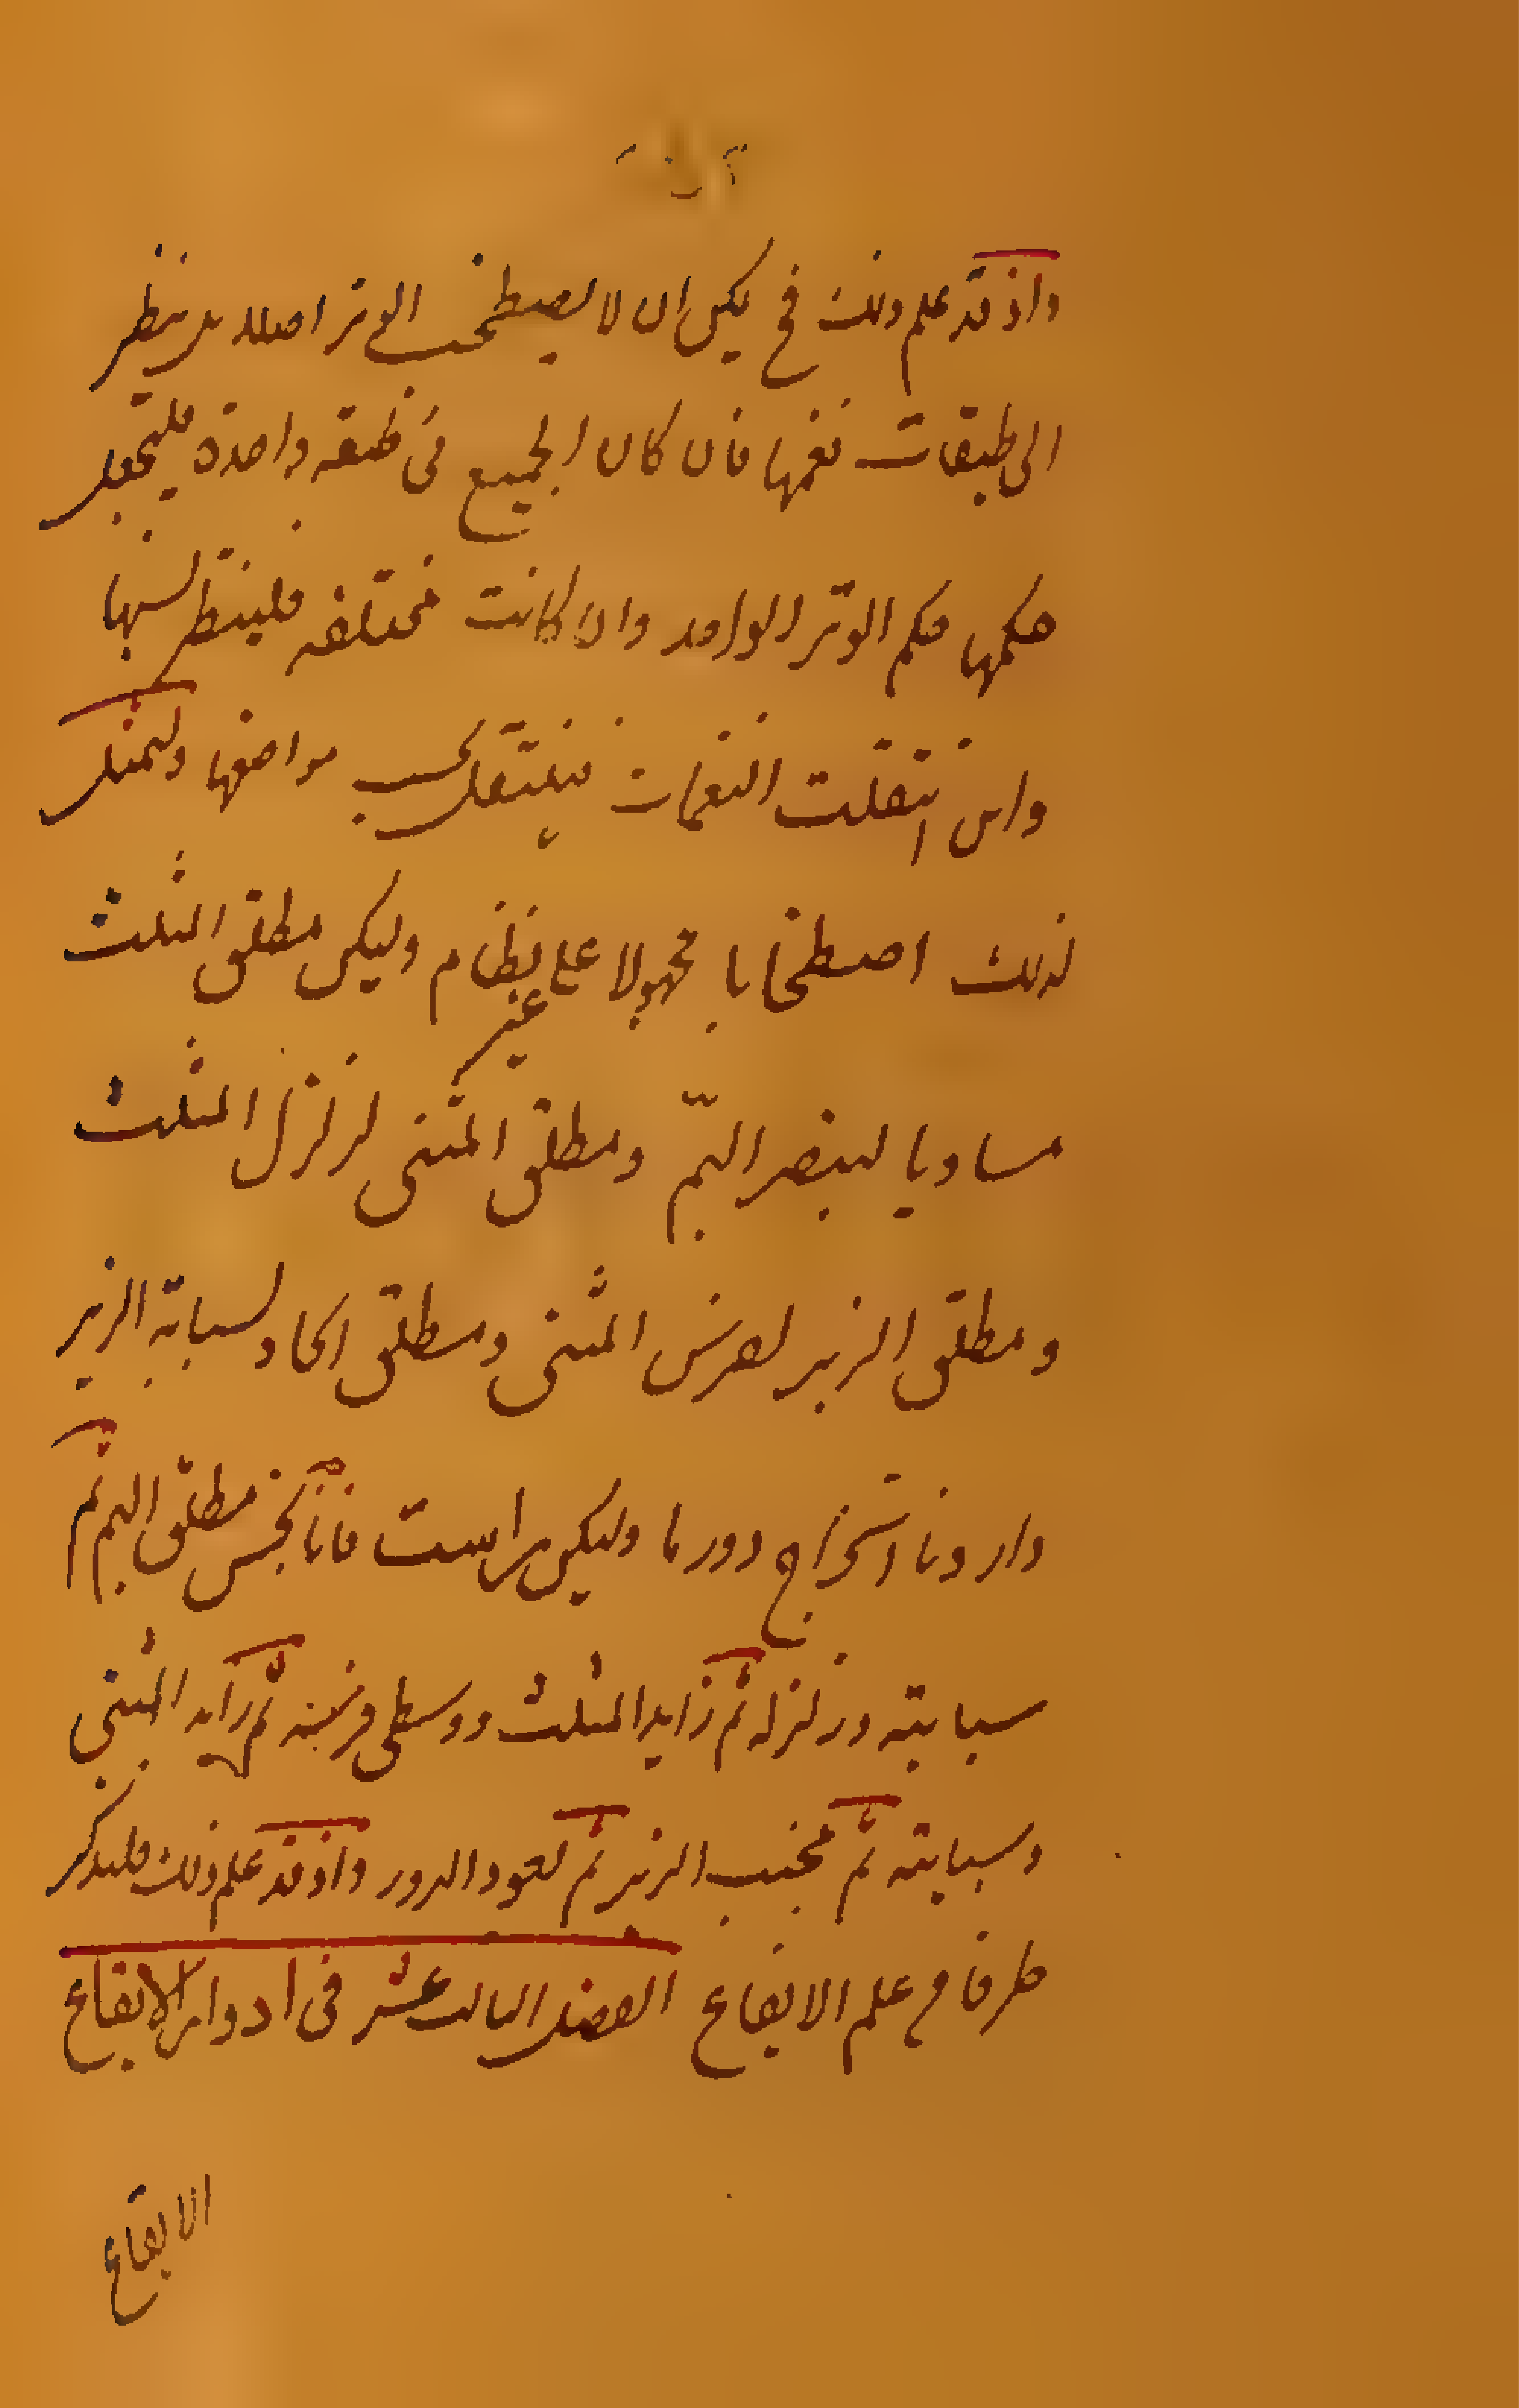 واذ قد علم ذلك فح يمكن ان لا يصطحب الوتر اصلا بل ينظر
الى طبقات نغمها فان كان الجميع في طبقه واحدة فليجعل
حكمها حكم الوتر الواحد وان كانت مختلفه فلينظر نسبها
وان انتقلت النغمات فينتقل بحسب مواضعها ولنمثل
لذلك اصطخابا مجهولا على غير نظام وليكن مطلق المثلث
مساويا لبنصر البمّ ومطلق المثنى لزلزل المثلث
ومطلق الزير لفرس المثنى ومطلق الحاد لسبابة الزير
واردنا استخراج دور ما وليكن راست فانا نجس مطلق البم ثم
سبابته وزلزله ثم زايد المثلث ووسطى فرسه ثم زايد المثنى
وسبابته ثم مجنب الزير ثم نعود الدور واذ قد علم ذلك فلنذكر
طرفا من علم الايقاع الفصل الثالث عشر في ادوار الايقاع
الايقاع